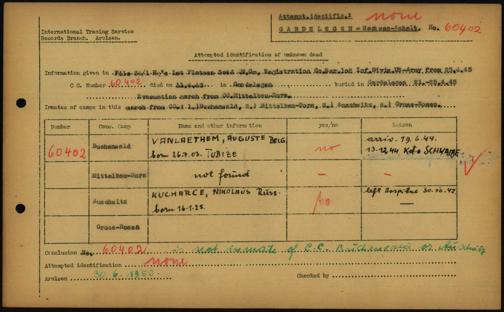 International Tracing Service
Records Branch. Arolsen.
Attempt. identific. none
GARDELEGEN - Sachsen-Anhalt. No. 60402
Attempted identification of unknown dead
Information given in File
from 25.4.45
C.C. Number 60402 died on 13.4.45 in Gardelegen buried in Gardelegen
Evacuation march from CC. Mittelbau-Dora.
Inmates of camps in this march from CC. 1.) Buchenwald, 2.) Mittelbau-Dora, 3.) Auschwitz, 4.) Gross-Rosen.
Number Conc. Camp Name and other information yes/no reason
60402 Buchenwald VANLAETHEM, AUGUSTE BELG. no arriv. 19.6.44.
born 26.7.02 TUBIZE 13.12.44 Kdo SCHWALBE
Mittelbau-Dora not found — —
Auschwitz KUCHARCE, NIKOLAUS Russ. no left Hospital 30.10.42
born 16.1.25.
Gross-Rosen
Conclusion No. 60402 is not inmate of C.C. Buchenwald or Auschwitz
Attempted identification none
Arolsen 30.6.1950. Checked by